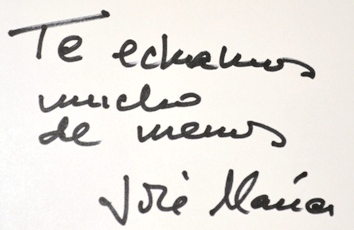 Te echamos
mucho
de menos
José María